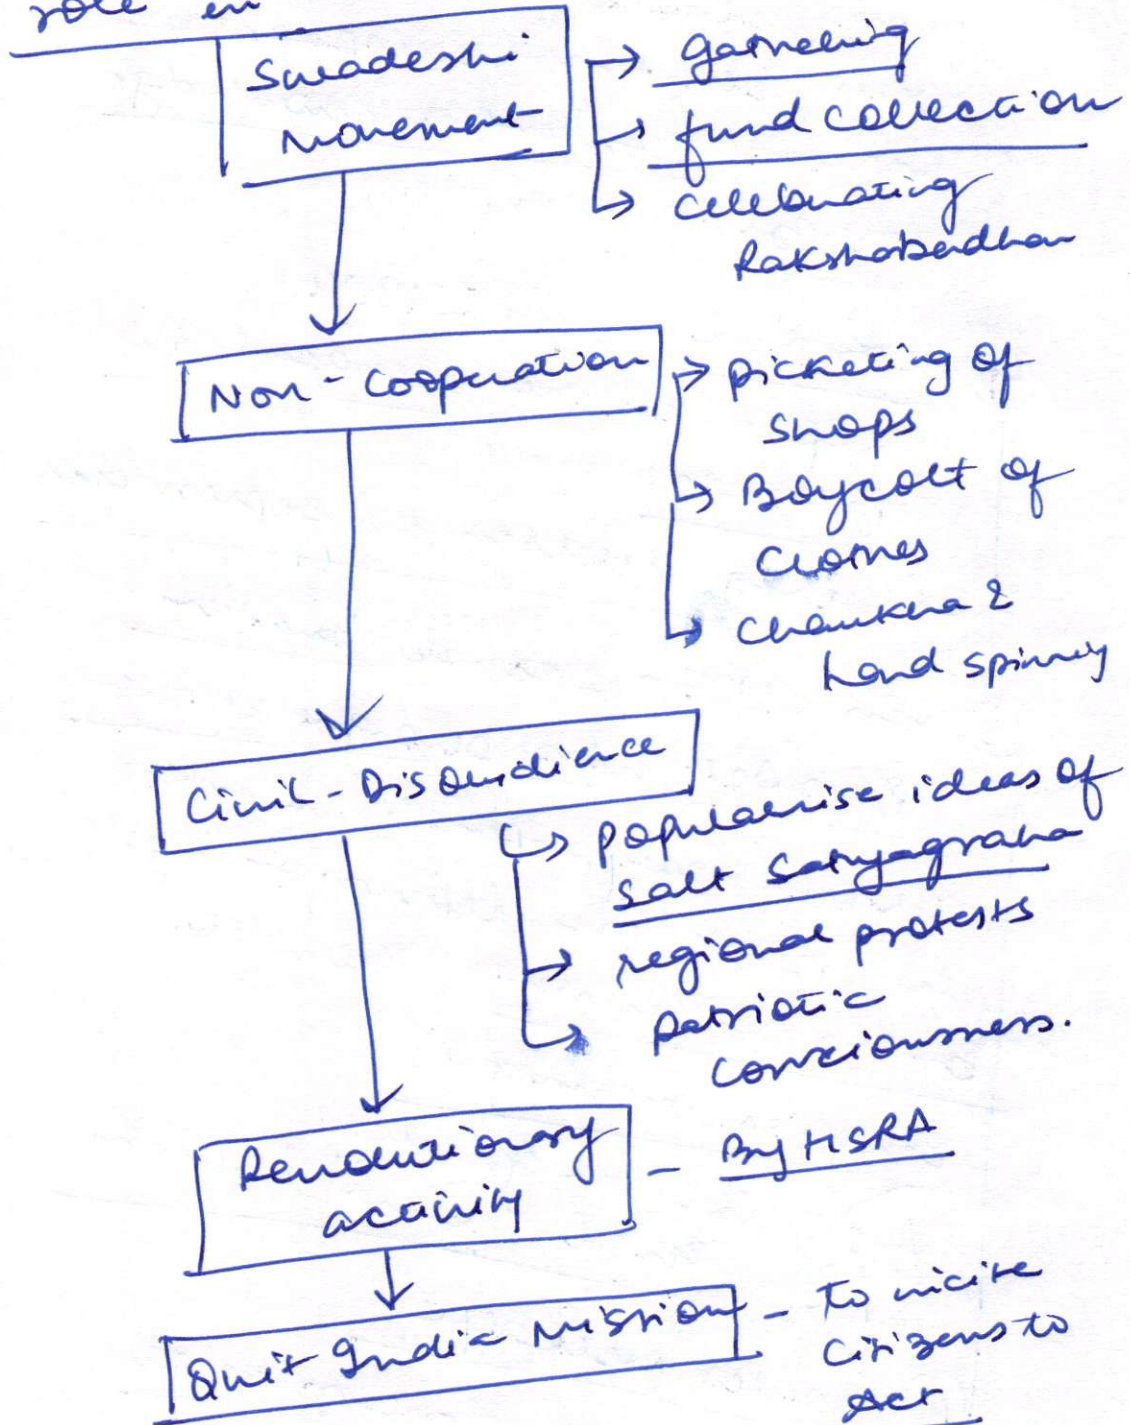 role in
Swadeshi
Movement
→ gathering
→ fund collection
→ celebrating
Rakshabandhan
Non-Cooperation
→ picketing of
shops
→ Boycott of
clothes
→ Charkha &
hand spinning
Civil-Disobedience
→ popularise ideas of
salt satyagraha
→ regional protests
→ patriotic
consciousness.
Revolutionary
activity
- By HSRA
Quit India Mission
- To incite
citizens to
Act